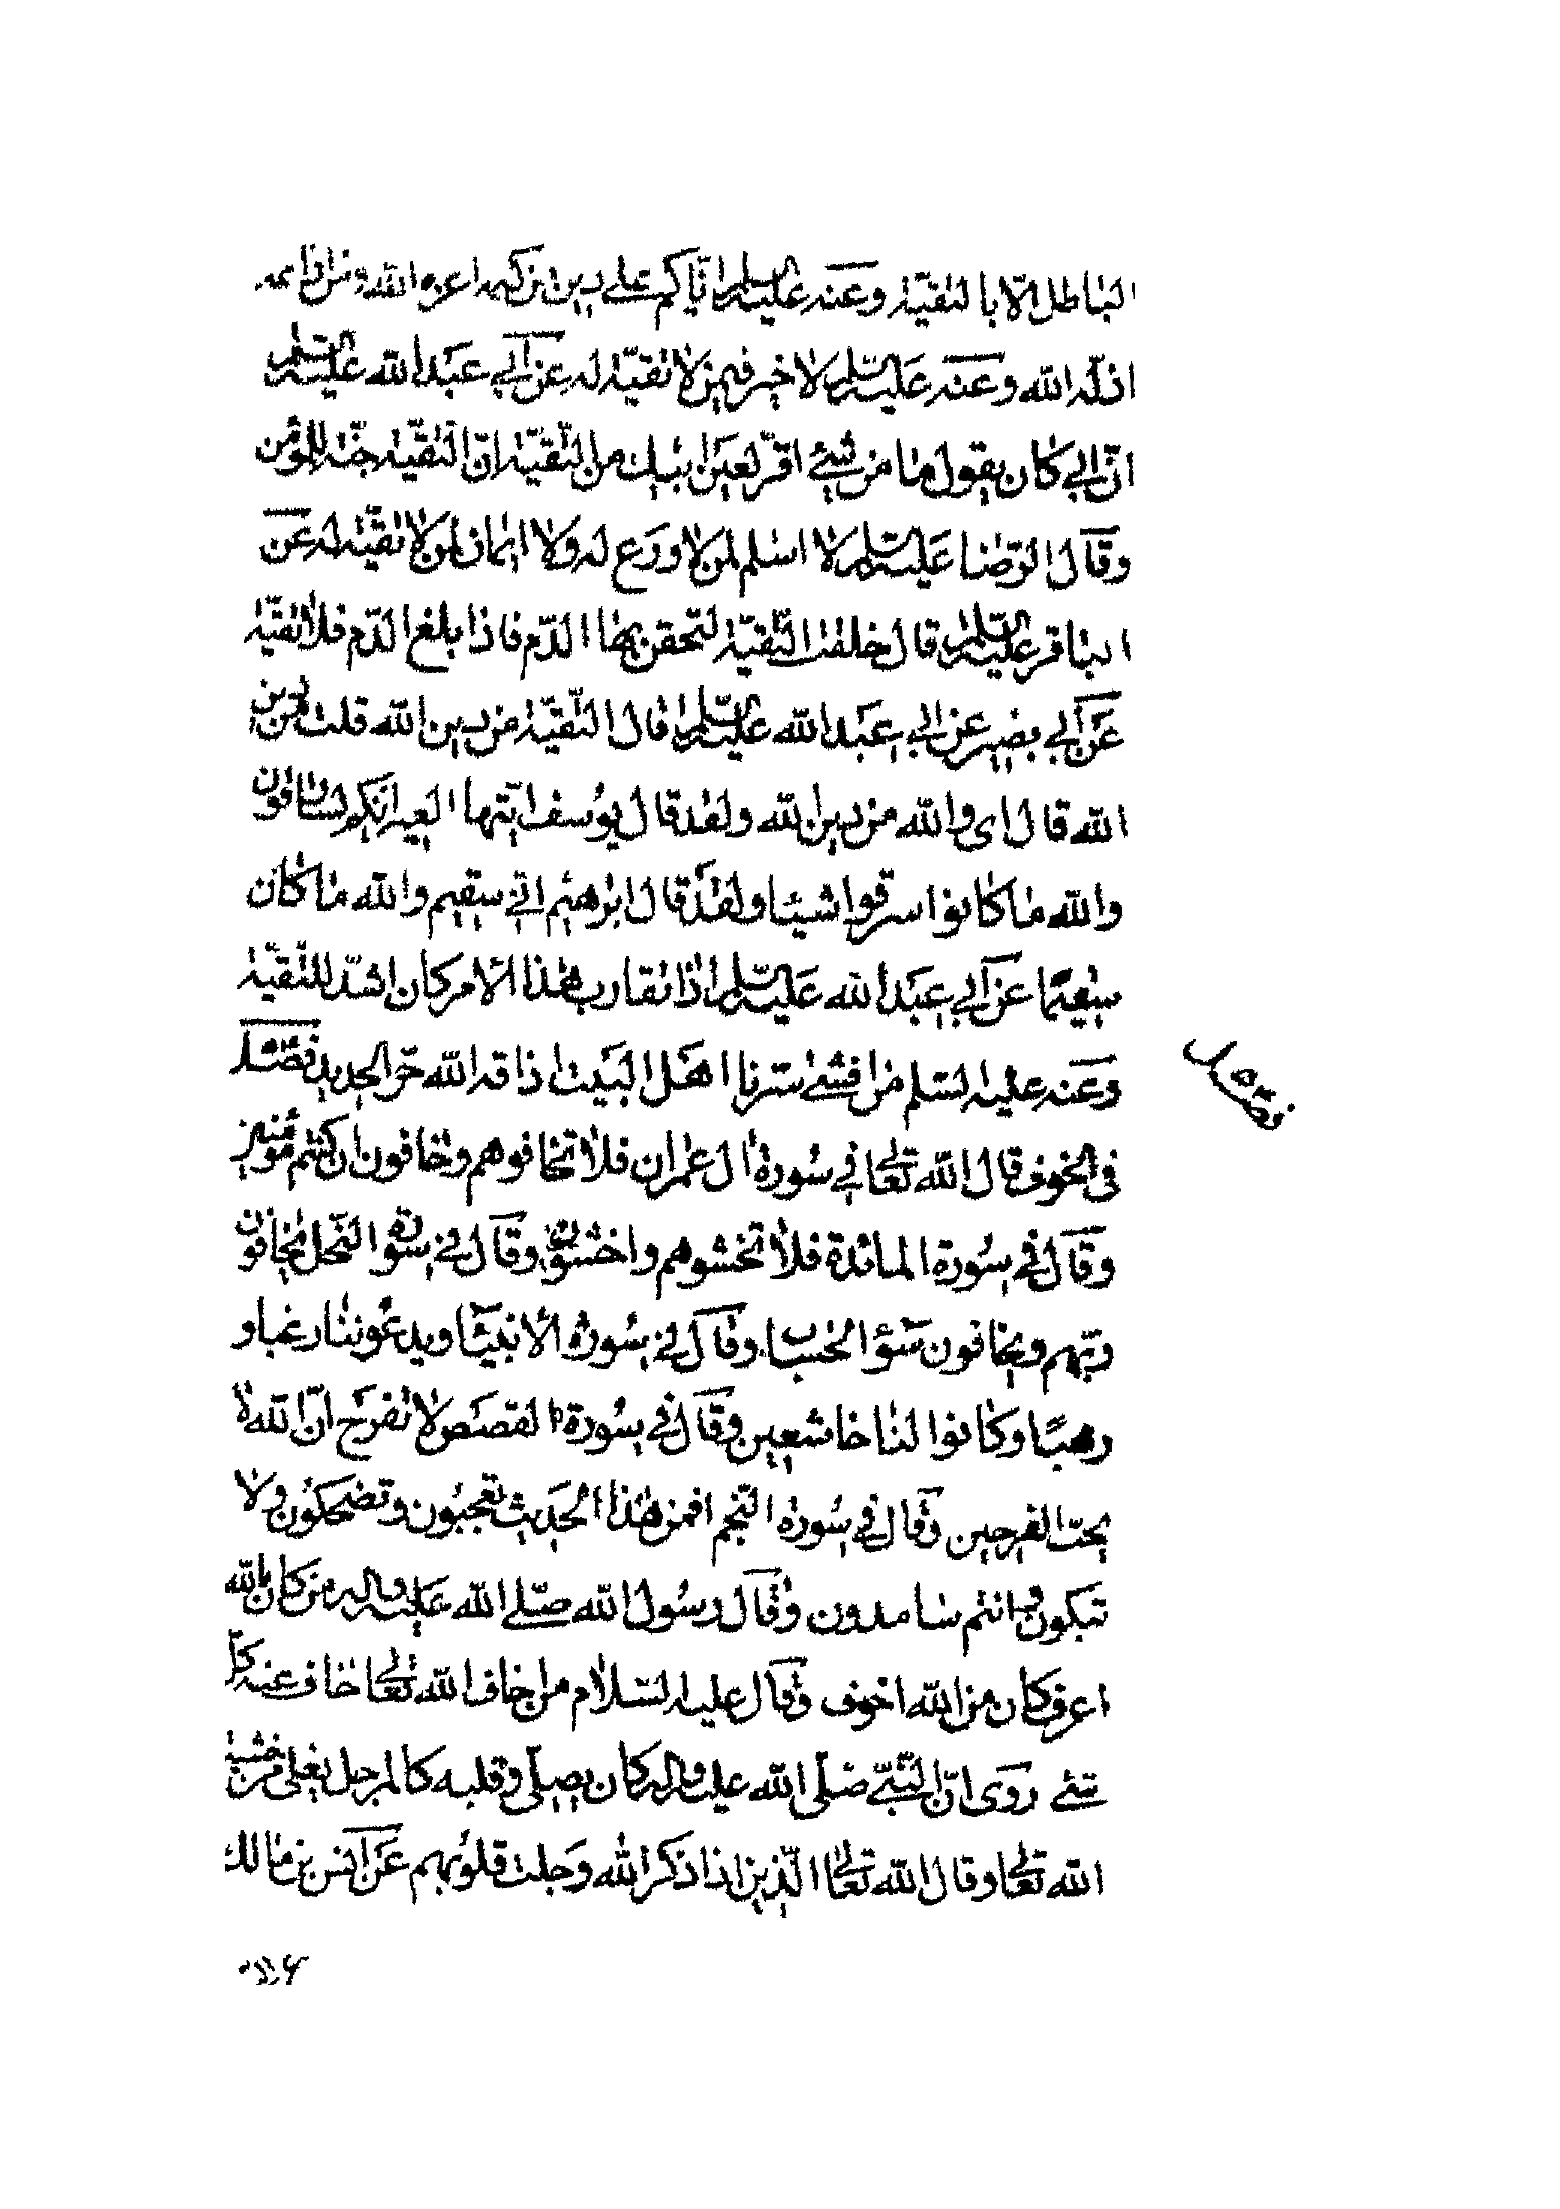 الباطل الّا بالتقيّة وعنه عليه السّلم انّكم على دين من كتمه اعزه الله ومن اذاعه
اذلّه الله وعنه عليه السّلم لا خير فيمن لا تقيّة له عن أبي عبد الله عليه السّلم
انّ ابي كان يقول ما من شيئ اقرّ لعين ابيك من التّقيّة انّ التّقيّة جنّة للمؤمن
وقال الرّضا عليه السّلم لا اسلم لمن لا ورع له ولا ايمان لمن لا تقيّة له عن
الباقر عليه السّلم قال جعلت التّقيّة لتحقن بها الدّم فاذا بلغ الدّم فلا تقيّة
عن أبي بصير عن ابي عبد الله عليه السّلم قال التّقيّة من دين الله قلت من دين
الله قال اى والله من دين الله ولقد قال يوسف ايّتها العير انّكم لسارقون
والله ما كانوا سرقوا شيئا ولقد قال ابرهيم انّي سقيم والله ما كان
سقيمًا عن أبي عبد الله عليه السّلم اذا تقارب هذا الأمر كان اشدّ للتّقيّة
وعنه عليه السّلم من افشى سرنا اهل البيت اذاقه الله حرّ الحديد فصل
فصل
فى الخوف قال الله تعالى في سورة آل عمران فلا تخافوهم وخافون ان كنتم مؤمنين
وقال في سورة المائدة فلا تخشوهم واخشونى وقال في سورة النّحل يخافون
ربّهم ويخافون سوء الحساب وقال في سورة الأنبياء ويدعوننا رغبا و
رهبًا وكانوا لنا خاشعين وقال في سورة القصص لا تفرح انّ الله لا
يحبّ الفرحين وقال في سورة النّجم افمن هذا الحديث تعجبون وتضحكون ولا
تبكون وانتم سامدون وقال رسول الله صلّى الله عليه واله من كان بالله
اعرف كان من الله اخوف وقال عليه السّلام من خاف الله تعالى خاف عنه كلّ
شئ روى انّ النّبيّ صلّى الله عليه واله كان يصلّى وقلبه كالمرجل يغلى من خشية
الله تعالى وقال الله تعالى الّذين اذا ذكر الله وجلت قلوبهم عن انس بن مالك